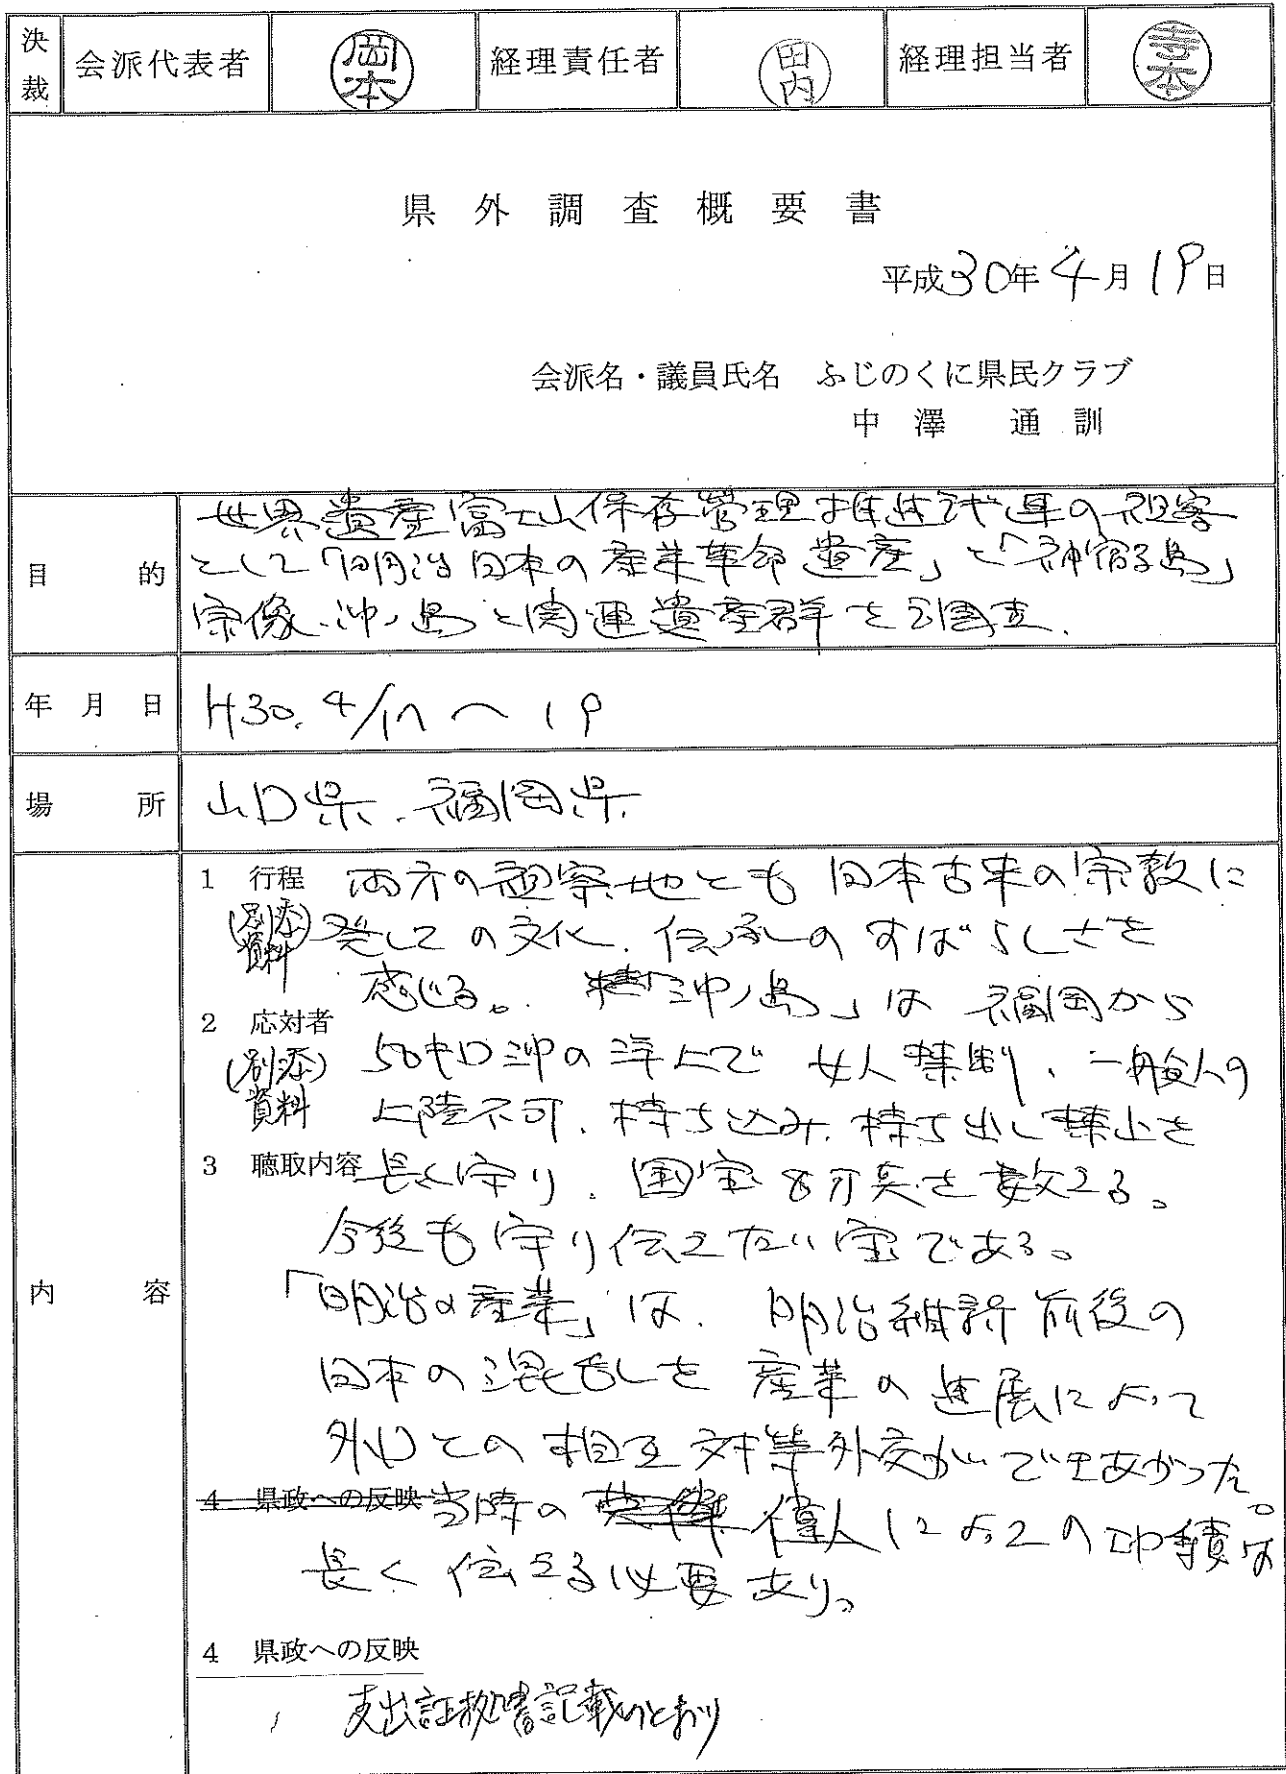 決裁 会派代表者 岡本 経理責任者 田内 経理担当者 寺本
県外調査概要書
平成30年4月19日
会派名・議員氏名 ふじのくに県民クラブ
中澤 通訓
目的
世界遺産富士山保存管理推進議連の視察
として「明治日本の産業革命遺産」と「神宿る島」
宗像・沖ノ島と関連遺産群を調査.
年月日 H30. 4/17 〜 19
場所 山口県. 福岡県.
内容
1 行程 両方の視察地とも 日本古来の宗教に
(別添資料) 発しての文化. 伝承のすばらしさを
感じる。「沖ノ島」は 福岡から
2 応対者
(別添資料) 50キロ沖の洋上で 女人禁制、一般人の
上陸不可. 持ち込み. 持ち出し禁止を
3 聴取内容 長く守り. 国宝8万点を数える。
今後も守り伝えたい宝である。
「明治の産業」は. 明治維新前後の
日本の混乱しを 産業の進展によって
外口との相互対等外交ができあがった。
4 県政への反映 当時の 偉人によっての功績は
長く伝える必要あり。
4 県政への反映
支出証拠書記載のとおり